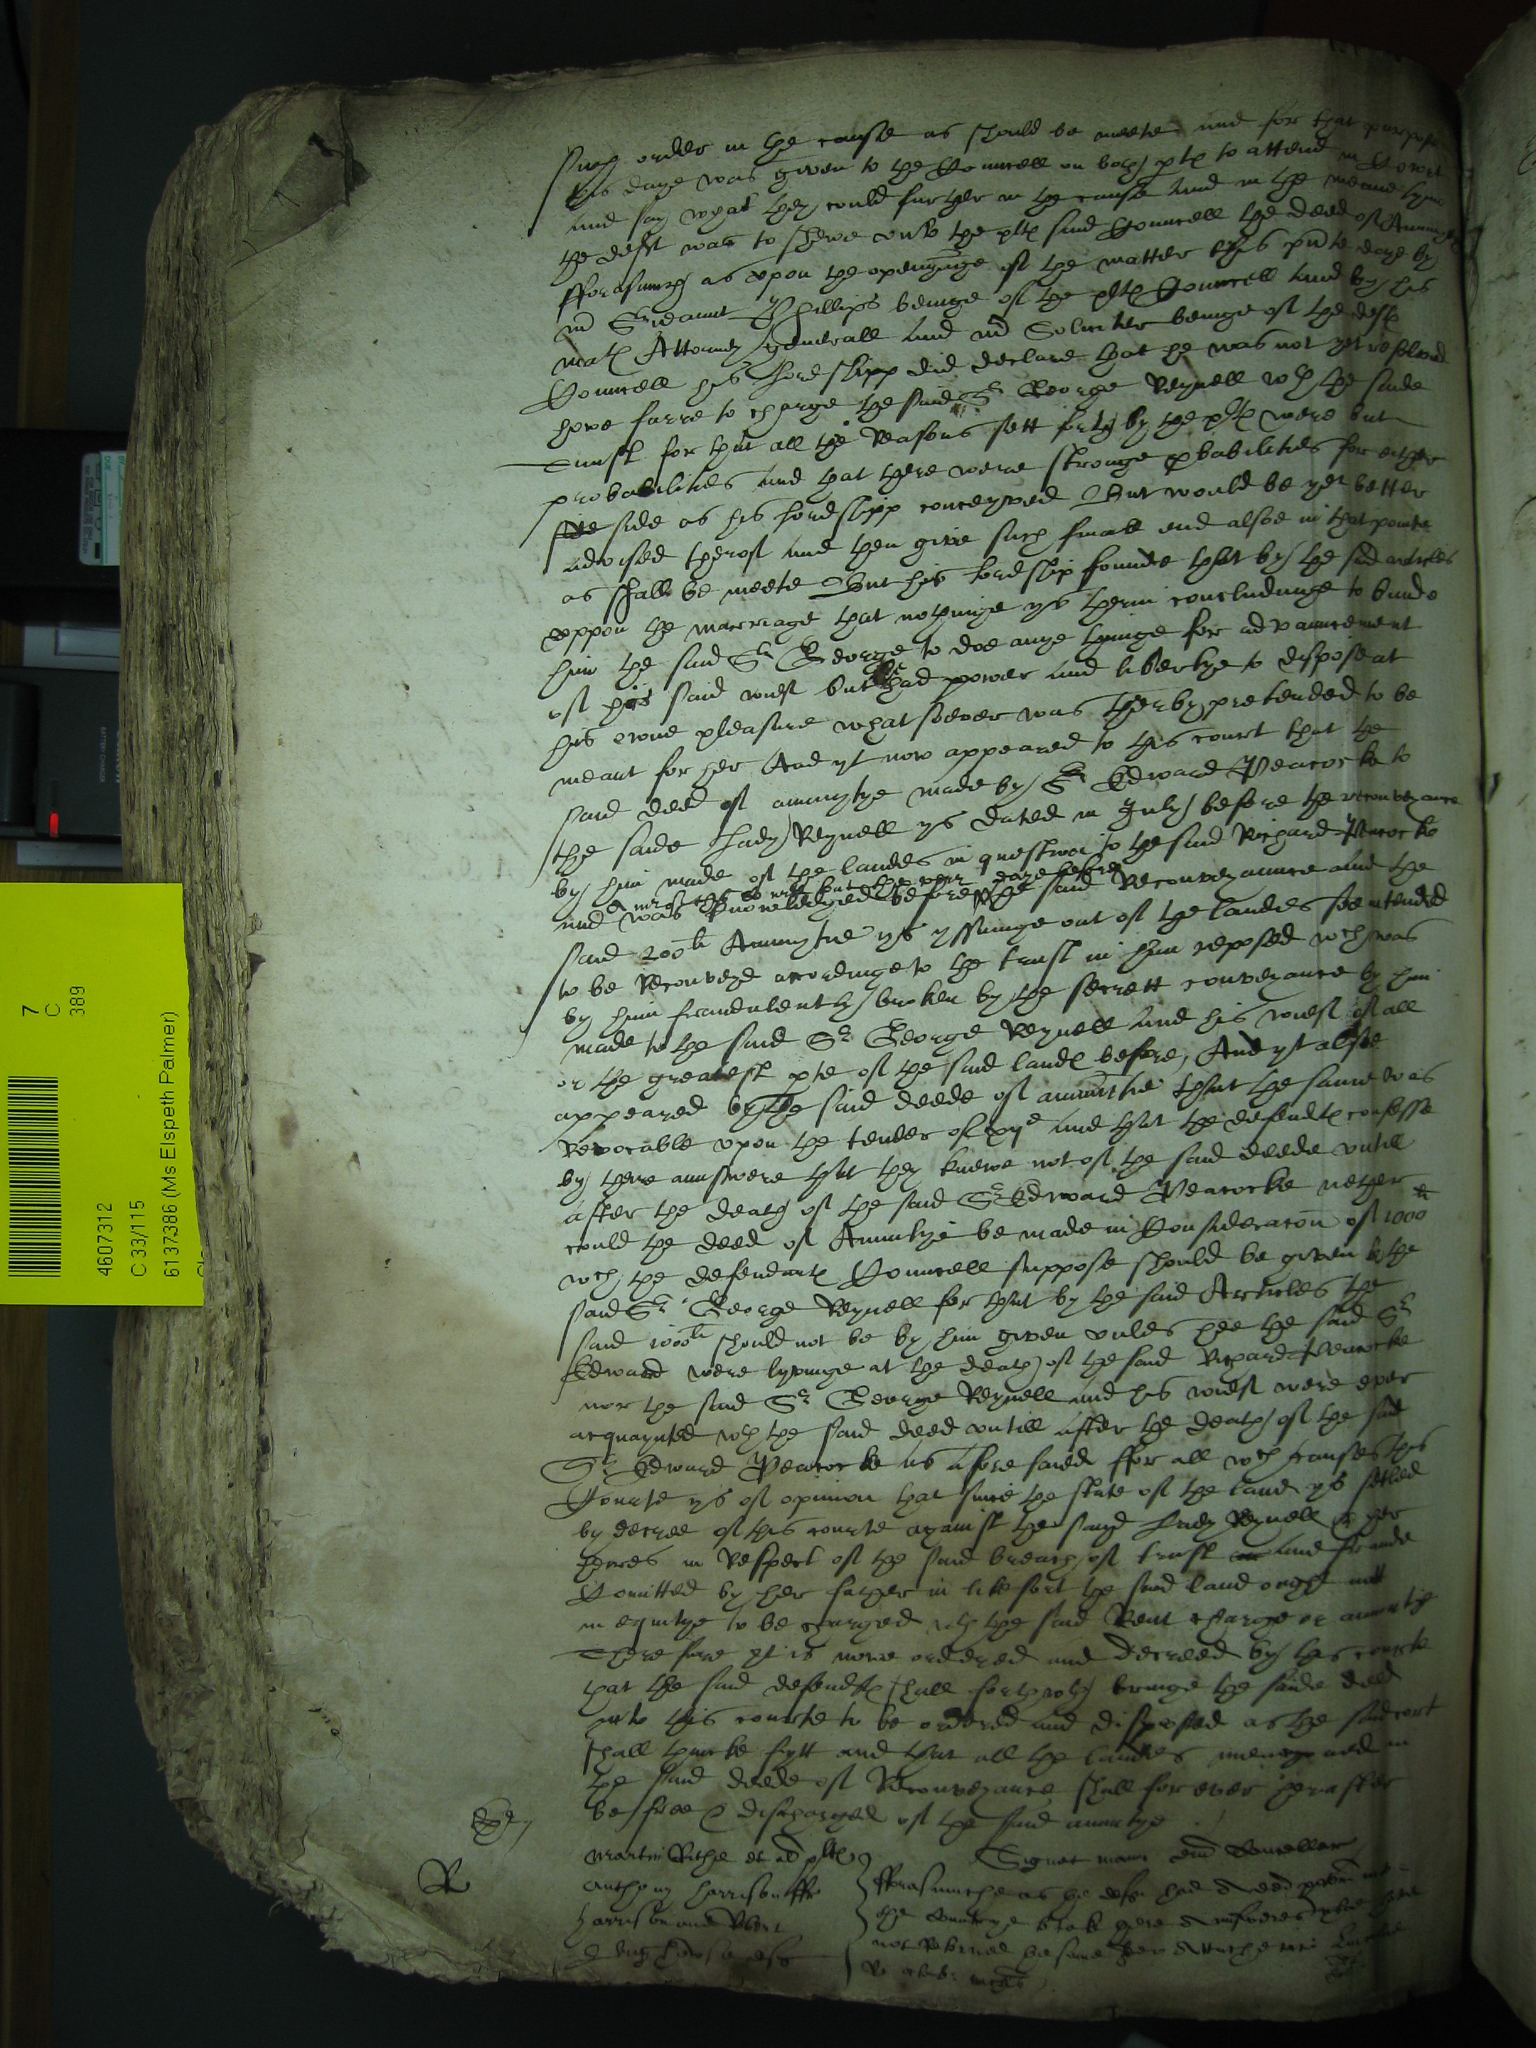 such order in the cause as should be meete and for that purpose
this daye was given to the Councell on both ptes to attend in Cowrt
and say what they could further in the cause And in the meane tyme
the deft was to shewe unto the plts said Councell the deed of Annuytye
fforasmuch as upon the openynge of the matter this pnte daye by
mr Serieaunt Phillips beinge of the plts Councell And by his
mats Attorney generall and mr Soliciter beinge of the defts
Councell his Lordshipp did declare that he was not yet resolved
howe farre to charge the said Sr George Reynell wth the saide
Trust for that all the Reasons sett forth by the plts were but
probabilities and that there were stronge pbabilities for either
side as his Lordshipp conceyved But would be yet better
advised therof and then give such finall end alsoe in that pointe
as shall be meete But his Lordship founde that by the said articles
uppon the marriage that nothinge ys therin concludinge to binde
him the said Sr George to doe anye thinge for advauncement
of his said wief but he had power and libertye to dispose at
his owne pleasure whatsoever was therby pretended to be
meant for her And yt now appeared to this court that the
said deed of annuytye made by Sr Edward Peacocke to
the saide Lady Reynell ys dated in July before the reconveyance
by him made of the landes in question to the said Richard Peacocke
but the very daye before
and was knowledged before the said Reconveyaunce and the
said 200li Annuytie ys yssuinge out of the landes soe intended
to be Reconveyed accordinge to the trust in him reposed wch was
by him fraudulently broken by the secrett conveyance by him
made to the said Sr George Reynell and his wief of all
or the greatest pte of the said lands before, And yt alsoe
appeared by the said deede of annuitie that the same was
Revocable upon the tender of xijd and that the defendts confesse
by there aunswere that they knewe not of the said deede untill
after the death of the said Sr Edward Peacocke nether
could the deed of Annuitye be made in Consideracon of 1000li
wch the defendants Councell suppose should be given by the
said Sr George Reynell for that by the said Articles the
said 1000li should not be by him given unles hee the said Sr
Edward were lyvinge at the death of the said Richard Peacocke
nor the said Sr George Reynell and his wief were ever
acquaynted wth the said deed untill after the death of the said
Sr Edward Peacocke as afore saied ffor all wch causes this
Courte ys of opinion that since the state of the land ys setled
by decree of this courte against the sayd Lady Reynell & her
heires in Respect of the said breach of trust and fraude
Comitted by her father in like sort the said land ought not
in equitye to be charged wth the said Rent charge or annuitye
Therefore yt is nowe ordered and decreed by this courte
that the said defendts shall forthwth bringe the saide deed
into this courte to be ordered and disposed as the said cort
shall thincke fytt and that all the landes menconed in
the said deede of Reconveyance shall for ever herafter
be free & discharged of the said annuitye
R
Anthony Harrison
Harrison and
fforasmuche as the deft had
the Countrye to take there Answeres
not Retorned the same
4607312
C 33/115
6137386 (Ms Elspeth Palmer)
7
C
389